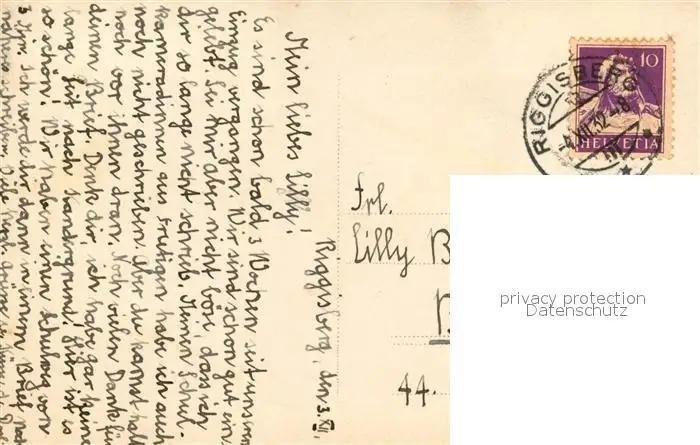 Riggisberg, den 3. XII.
Mein liebes Lilly!
Es sind schon bald 3 Wochen seit unserm
Einzug vergangen. Wir sind schon gut ein-
gelebt. Sei mir aber nicht böse, dass ich
dir so lange nicht schrieb. Meinen Schul-
kameradinnen aus Frutigen habe ich auch
noch nicht geschrieben. Aber du kamst halt
noch vor ihnen dran. Noch vielen Dank für
deinen Brief. Denk dir, ich habe gar keine
lange Zeit nach Kandergrund. Hier ist es
so schön! Wir haben einen Schulweg von
3 Min. Ich werde dir dann in einem Brief noch
näheres schreiben. Viele
Frl.
Lilly B
44.
RIGGISBERG
-4.XII.32.-8
10
HELVETIA
privacy protection
Datenschutz